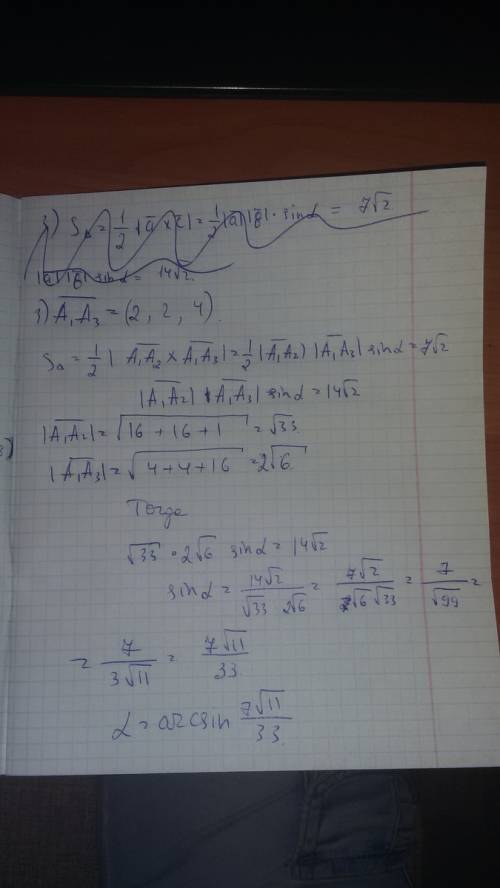 3) S_Δ = 1/2 |a̅ × c̅| = 1/2 |a̅| |b̅| · sin α = 7√2
|a̅| |b̅| sin α = 14√2
3) A₁A₃ = (2, 2, 4)
S_Δ = 1/2 | A₁A₂ × A₁A₃ | = 1/2 |A₁A₂| |A₁A₃| sin α = 7√2
|A₁A₂| |A₁A₃| sin α = 14√2
|A₁A₂| = √(16 + 16 + 1) = √33
|A₁A₃| = √(4 + 4 + 16) = 2√6
Тогда
√33 · 2√6 sin α = 14√2
sin α = 14√2 / (√33 2√6) = 7√2 / (√6 √33) = 7 / √99 =
= 7 / (3√11) = 7√11 / 33
α = arcsin 7√11 / 33